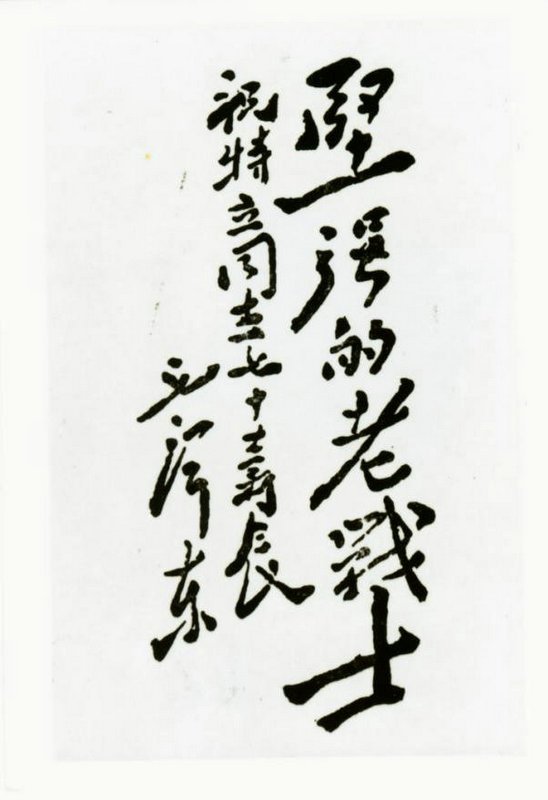 堅强的老戰士
祝特立同志七十壽辰
毛泽东